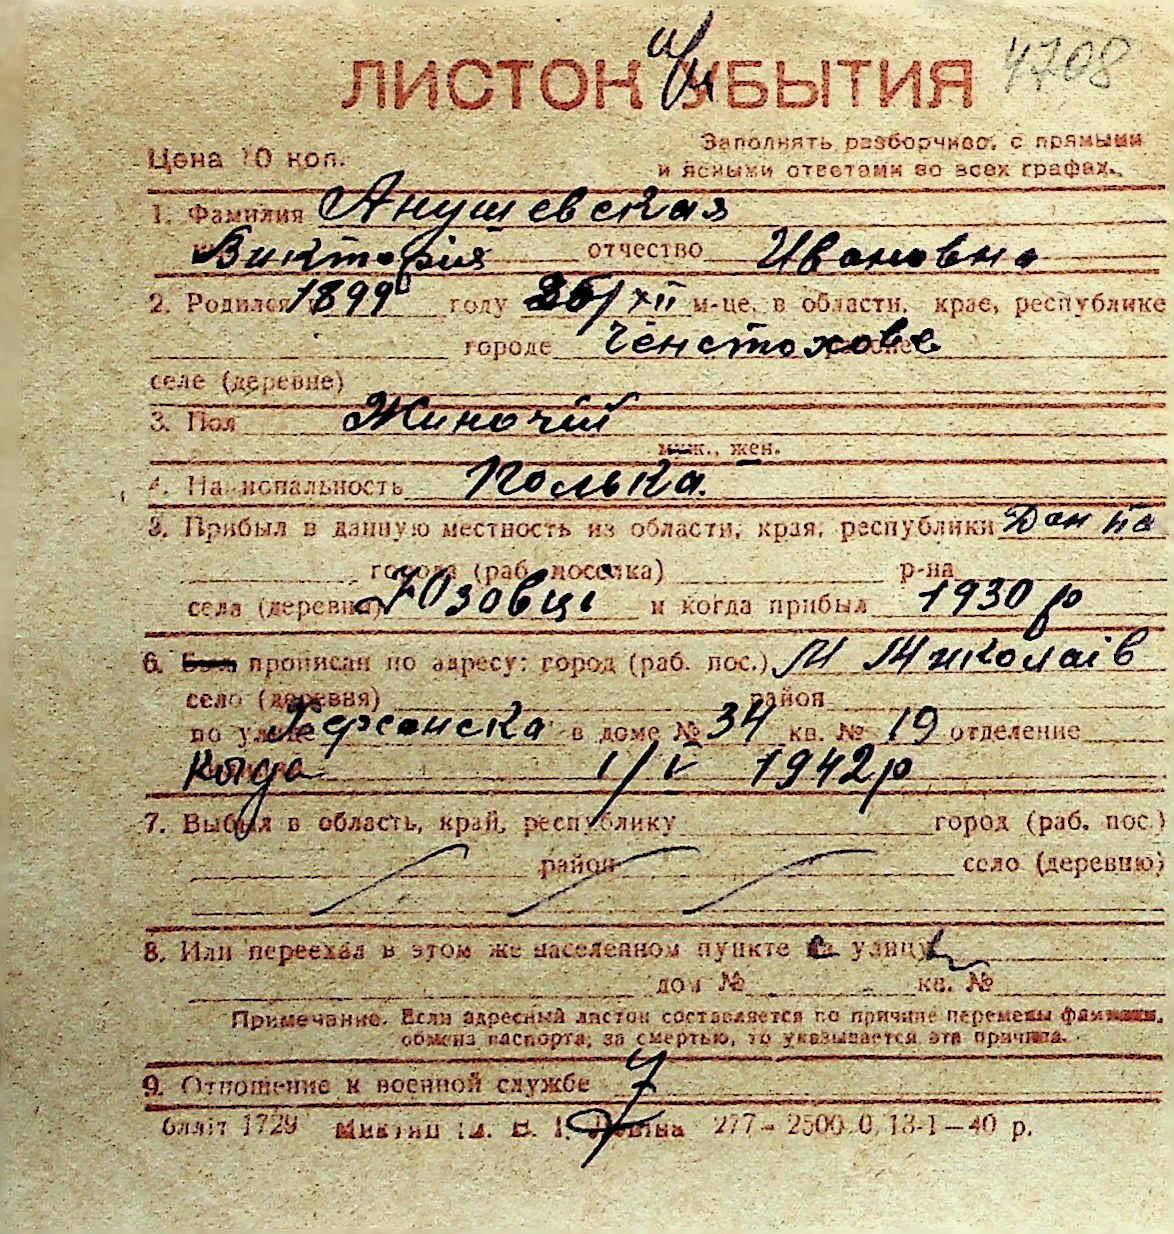 ЛИСТОК УБЫТИЯ 4708
Цена 10 коп.
Заполнять разборчиво, с прямыми
и ясными ответами во всех графах.
1. Фамилия Анушевская
Викторія отчество Ивановна
2. Родился 1899 году 25/XII м-це, в области, крае, республике
городе Ченстохове
селе (деревне)
3. Пол Жиночій
муж., жен.
4. Национальность Полька.
5. Прибыл в данную местность из области, края, республики
города (раб. поселка) р-на
села (деревня) Юзовці и когда прибыл 1930 р
6. Был прописан по адресу: город (раб. пос.) М Миколаів
село (деревня) район
по улице Херсонска в доме № 34 кв. № 19 отделение
Когда 1/V 1942 р
7. Выбыл в область, край, республику город (раб. пос.)
район село (деревню)
8. Или переехал в этом же населенном пункте на улицу
дом № кв. №
Примечание. Если адресный листок составляется по причине перемены фамилии,
обмена паспорта, за смертью, то указывается эта причина.
9. Отношение к военной службе
блліт 1729 277 - 2500 0. 13-1-40 р.